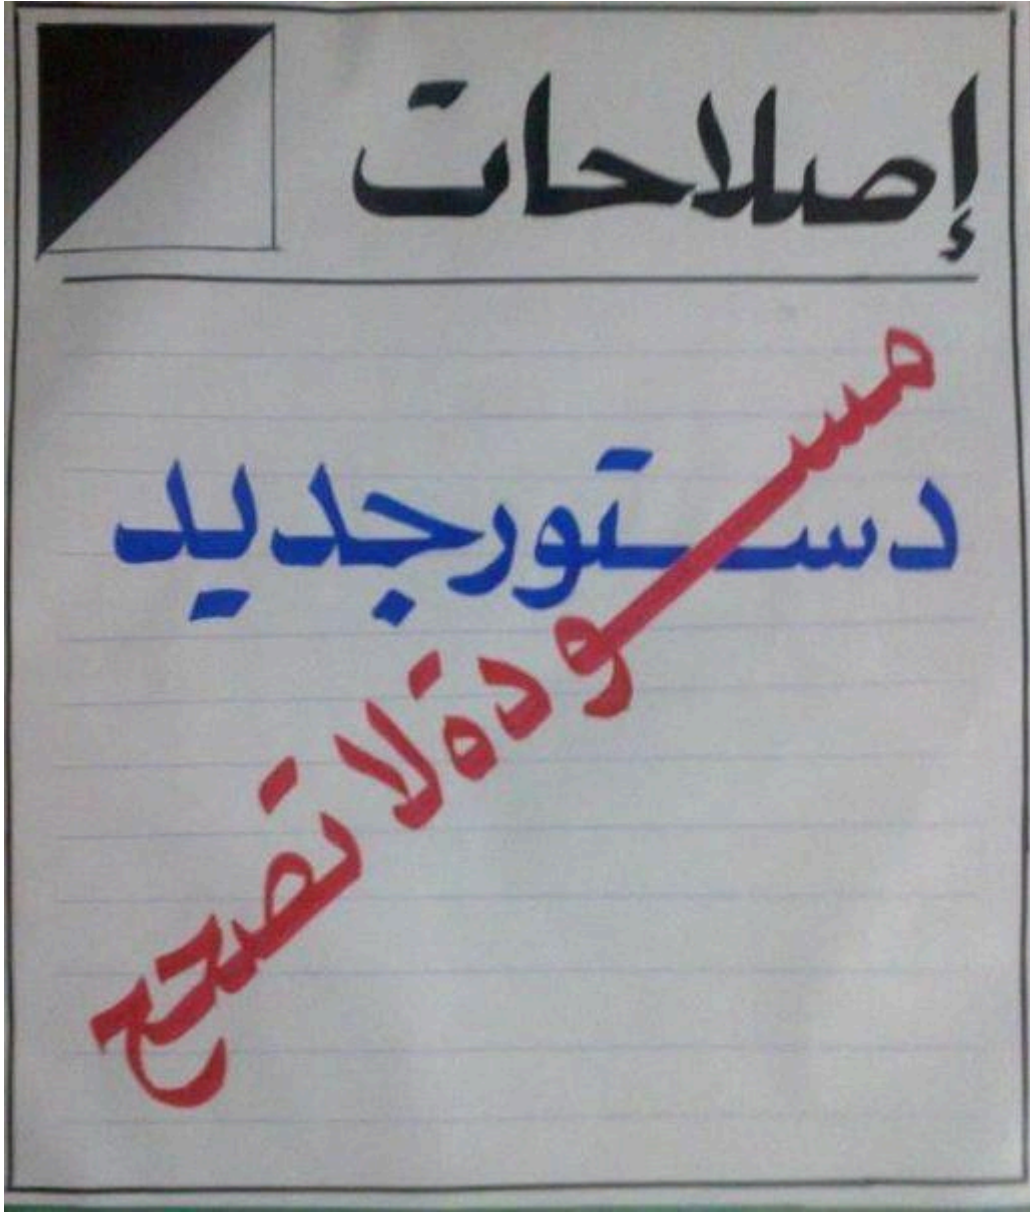 إصلاحات
دستور جديد
مسودة لا تصحح